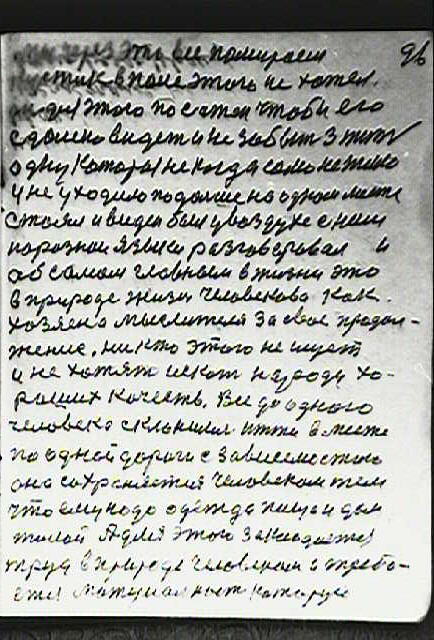 96
мы через это все помираем
кустик в поле этого не хотел.
для этого посажен чтоб и его
сдалека видет и не забыт Этот
одну которы некогда само не жило
и не уходило подальше на одном месте
стоял и видел был у воздухе с ним
по разном языки разговаревал и
об самом главным в жизни это
в природе жизн человекова как.
хозяена мыслителя за свое продол-
жение. Никто этого не ищет
и не хотят искат народу хо-
роших качеств. Все до одного
человека склонилис итти в месте
по одной дороги с зависемостию
она сохраняется человеком тем
что ему надо одежда пища и дом
жилой А для этого закладается
труд в природе человеком и требо-
ется материалност которую